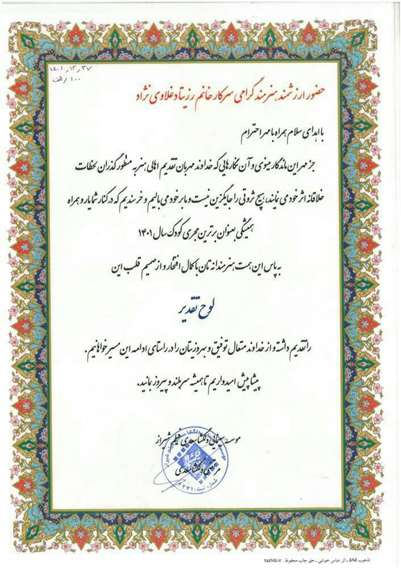 ۱۴۰۱,۱۲,۲۷
حضور ارزشمند هنرمند گرامی سرکار خانم رزیتا دغلاوی نژاد
با اهدای سلام همراه با مهر و احترام
جز مهر این ماندگار مینوی و آن نگارهایی که خداوند مهربان تقدیم اهالی هنر به منظور گذران لحظات
خلاقانه اثر خود می نمایند، هیچ ثروتی را جایگزین نیست و ما بر خود می بالیم و خرسندیم که در کنار شما یار و همراه
همیشگی بعنوان برترین مجری کودک سال ۱۴۰۱
به پاس این همت هنرمندانه تان با کمال افتخار و از صمیم قلب این
لوح تقدیر
را تقدیم داشته و از خداوند متعال توفیق و بهروزیتان را در راستای ادامه این مسیر خواهانیم.
پیشاپیش امیدواریم تا همیشه سربلند و پیروز بمانید.
موسسه سینمایی دلگشا سعدی فیلم شیراز